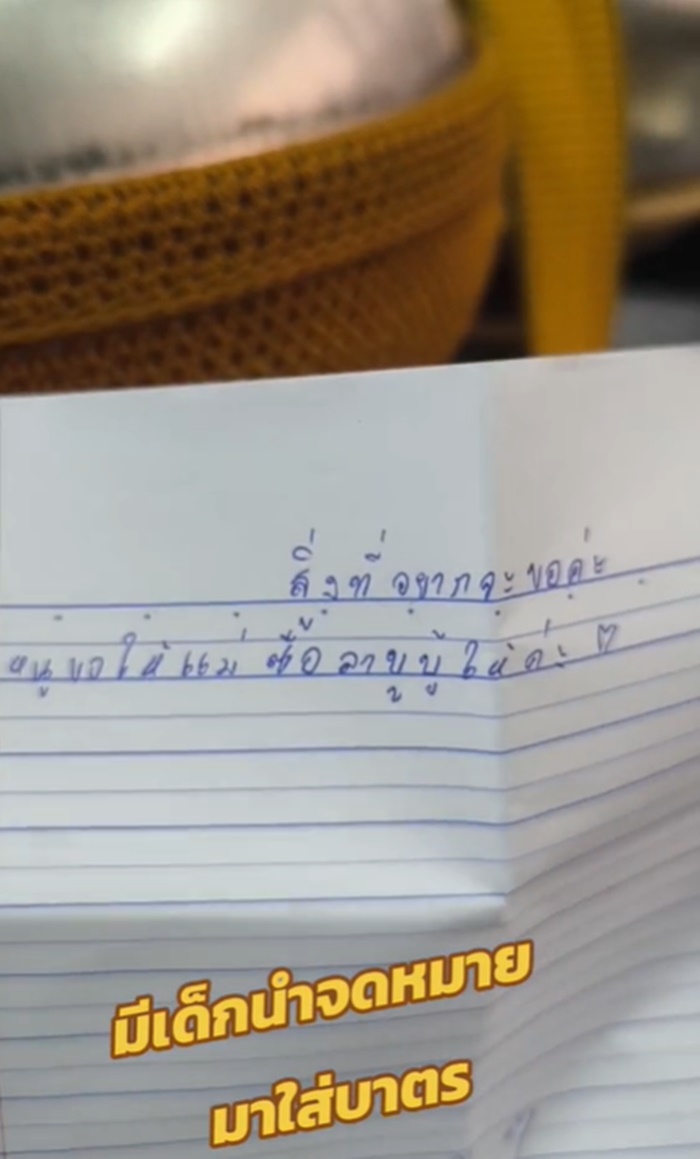 สิ่งที่อยากจะขอค่ะ
หนูขอให้แม่ ซื้อลาบูบู้ให้ค่ะ
มีเด็กนำจดหมาย
มาใส่บาตร